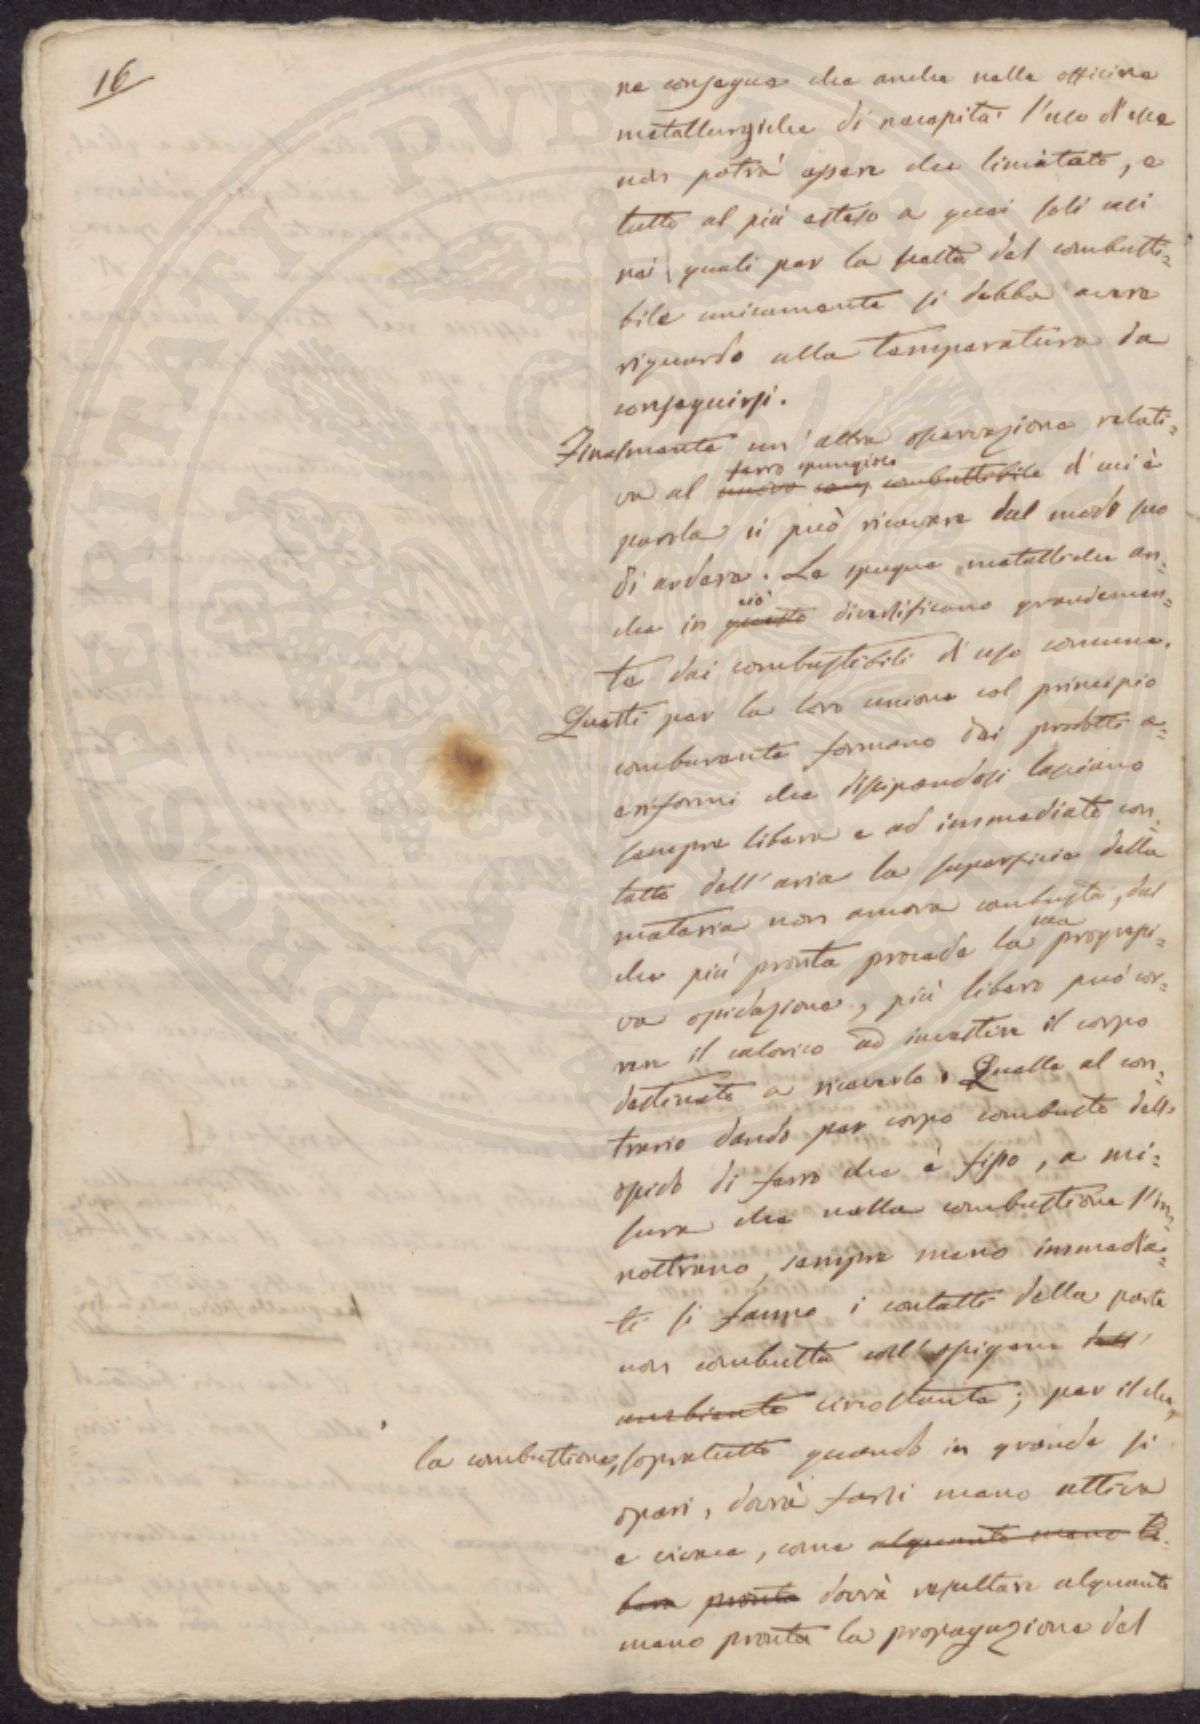 16
ne consegue che anche nelle officine
metallurgiche di necessità l'uso d'esse
non potrà essere che limitato, e
tutto al più esteso a quei soli casi
nei quali per la scelta del combusti=
bile unicamente si debba avere
riguardo alla temperatura da
conseguirsi.
Finalmente un'altra osservazione relati=
va al ferro spungioso combustibile d'cui è
parola si può ricavare dal modo suo
di ardere. Le spugne metalliche an=
che in ciò questo diversificano grandemen=
te dai combustibili d'uso comune.
Questi per la loro unione col principio
comburente formano dei prodotti a=
eriformi che dissipandosi lasciano
sempre libera e ad immediato con=
tatto dell'aria la superficie della
materia non ancora combusta, dal
che più pronta procede la sua progressi=
va ossidazione, più libero può cor=
rere il calorico ad investire il corpo
destinato a riceverlo. Quelle al con=
trario dando per corpo combusto dello
ossido di ferro che è fisso, a mi=
sura che nella combustione s'in=
noltrano, sempre meno immedia=
ti si fanno i contatti della parte
non combusta coll'ossigene dell'
ambiente circostante; per il che,
la combustione, sopratutto quando in grande si
operi, dovrà farsi meno attiva
e vivace, come alquanto meno li=
bera pronta dovrà resultare alquanto
meno pronta la propagazione del